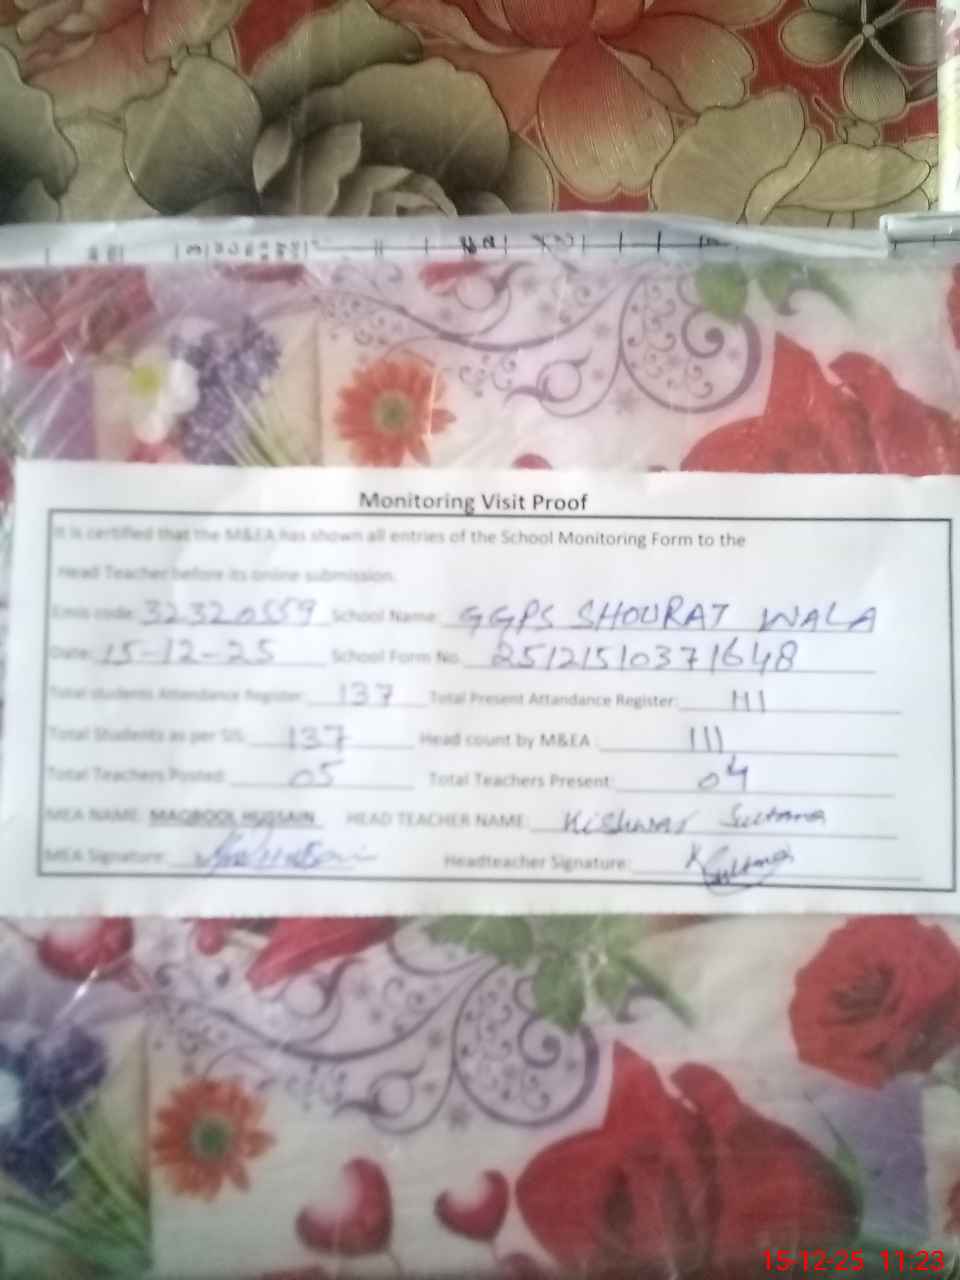 Monitoring Visit Proof
It is certified that the M&EA has shown all entries of the School Monitoring Form to the
Head Teacher before its online submission.
Emis code: 32320559 School Name: GGPS SHOURAT WALA
Date: 15-12-25 School Form No. 25121510371648
Total students Attendance Register: 137 Total Present Attandance Register: 111
Total Students as per SIS: 137 Head count by M&EA: 111
Total Teachers Posted: 05 Total Teachers Present: 04
MEA NAME: MAQBOOL HUSSAIN HEAD TEACHER NAME: Kishwar Sultana
MEA Signature: Headteacher Signature: KSultana
15-12-25 11:23